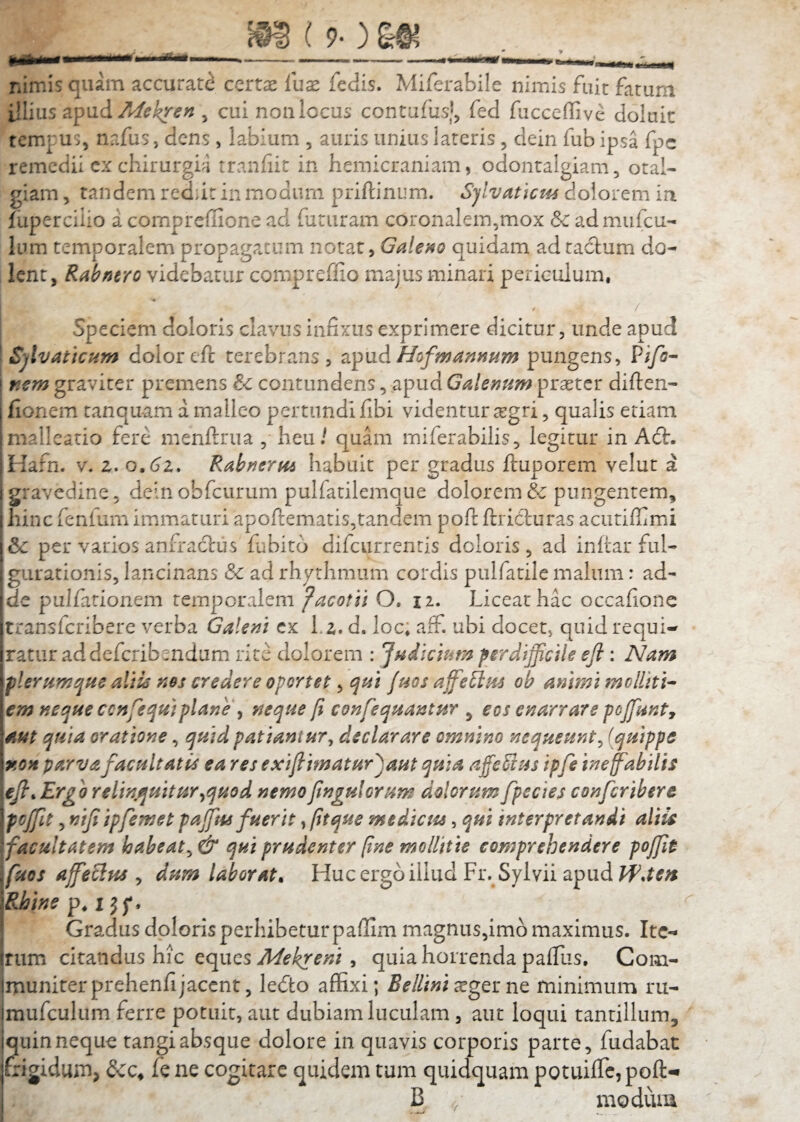 ( 9. )
nimis quàm accuratè certæ ſuæ ſedis. Miſerabile nimis fuit fatum
illius apud Mekren, cui non locus contuſus, ſed ſucceſſivè doluit
tempus, naſus, dens, labium, auris unius lateris, dein ſub ipsâ ſpe
remedii ex chirurgiâ tranſiit in hemicraniam, odontalgiam, otal-
giam, tandem rediit in modum priſtinum. Sylvaticus dolorem in
ſupercilio à compreſſione ad ſuturam coronalem, mox & ad muſcu-
lum temporalem propagatum notat, Galeno quidam ad tactum do-
lent, Rabnero videbatur compreſſio majus minari periculum.
Speciem doloris clavus infixus exprimere dicitur, unde apud
Sylvaticum dolor eſt terebrans, apud Hofmannum pungens, Piſo-
nem graviter premens & contundens, apud Galenum præter diſten-
ſionem tanquam à malleo pertundi ſibi videntur ægri, qualis etiam
malleatio ferè menſtrua, heu! quàm miſerabilis, legitur in Act.
Hafn. v. 2. o. 62. Rabnerus habuit per gradus ſtuporem velut à
gravedine, dein obſcurum pulſatilemque dolorem & pungentem,
hinc ſenſum immaturi apoſtematis, tandem poſt ſtricturas acutiſſimi
& per varios anfractus ſubitò diſcurrentis doloris, ad inſtar ful-
gurationis, lancinans & ad rhythmum cordis pulſatile malum: ad-
de pulſationem temporalem Jacotii O. 12. Liceat hâc occaſione
transſcribere verba Galeni ex l. 2. d. loc; aff. ubi docet, quid requi-
ratur ad deſcribendum ritè dolorem: Judicium perdifficile eſt: Nam
plerumque aliis nos credere oportet, qui ſuos affectus ob animi molliti-
em neque conſequi planè, neque ſi conſequantur, eos enarrare poſſunt,
aut quia oratione, quid patiantur, declarare omnino nequeunt, (quippe
non parva facultatis ea res exiſtimatur) aut quia affectus ipſe ineffabilis
eſt. Ergo relinquitur, quod nemo ſingulorum dolorum ſpecies conſcribere
poſſit, niſi ipſemet paſſus fuerit, ſitque medicus, qui interpretandi aliis
facultatem habeat, & qui prudenter ſine mollitie comprehendere poſſit
ſuos affectus, dum laborat. Huc ergò illud Fr. Sylvii apud W. ten
Rhine p. 135.
Gradus doloris perhibetur paſſim magnus, imò maximus. Ite-
rum citandus hîc eques Mekreni, quia horrenda paſſus. Com-
muniter prehenſi jacent, lecto affixi; Bellini æger ne minimum ru-
muſculum ferre potuit, aut dubiam luculam, aut loqui tantillum,
quin neque tangi absque dolore in quavis corporis parte, ſudabat
frigidum, &c. ſe ne cogitare quidem tum quidquam potuiſſe, poſt-
B modum